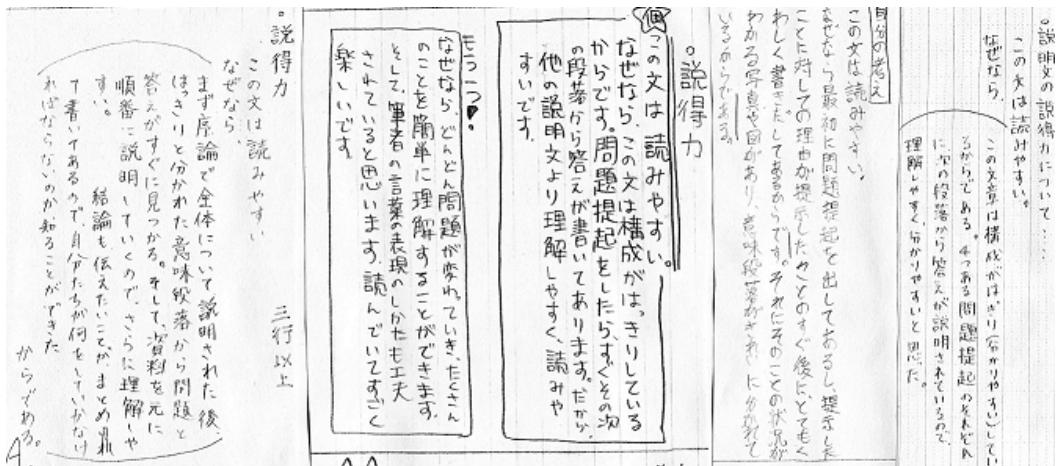 説明文の説得力について‥‥
この文は読みやすい。
なぜなら、
この文章は構成がはっきり(分かりやすい)してい
るからである。4つある問題提起のそれぞれ
に次の段落から答えが説明されているので、
理解しやすく、分かりやすいと思った。
自分の考え
この文は読みやすい。
なぜなら最初に問題提起を出してあるし、提示した
ことに対しての理由が提示したことのすぐ後にとてもく
わしく書きたしてあるからです。それにそのことの状況が
わかる写真や図があり、意味段落がきれいに分かれて
いるからである。
。説得力
個この文は読みやすい。
なぜなら、この文は構成がはっきりしている
からです。問題提起をしたら、すぐその次
の段落から答えが書いてあります。だから、
他の説明文より理解しやすく、読みや
すいです。
もう一つ
なぜなら、どんどん問題が変わっていき、たくさん
のことを簡単に理解することができます。
そして、筆者の言葉の表現のしかたも工夫
されていると思います。読んでいてすごく
楽しいです。
。説得力 三行以上
この文は読みやすい
なぜなら、
まず序論で全体について説明された後
はっきりと分かれた意味段落から問題と
答えがすぐに見つかる。そして、資料を元に
順番に説明していくので、さらに理解しや
すい。 結論も伝えたいことが、まとめられ
て書いてあるので、自分たちが何をしていかなけ
ればならないのか知ることができた
からである。